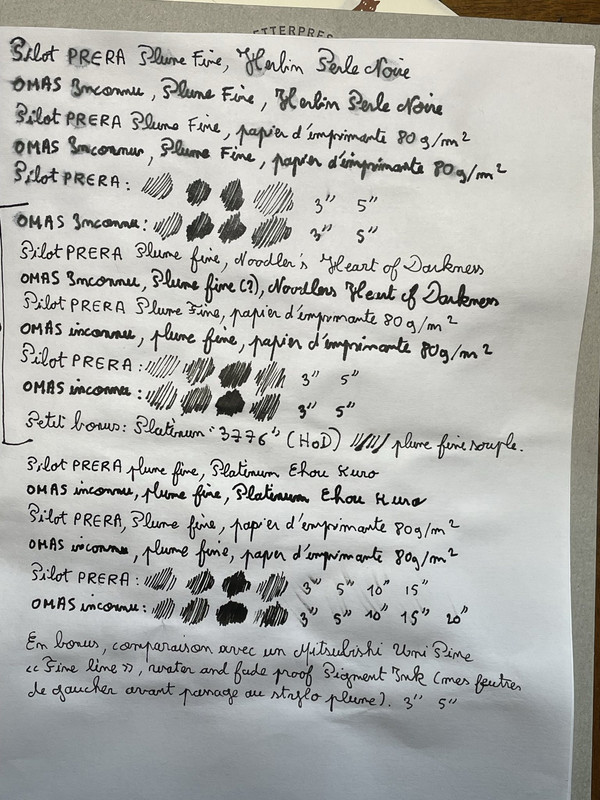 ETTERPRES
Pilot PRERA Plume Fine, Herbin Perle Noire
OMAS Inconnu, Plume Fine, Herbin Perle Noire
Pilot PRERA Plume Fine, papier d'imprimante 80g/m²
OMAS Inconnu, Plume Fine, papier d'imprimante 80g/m²
Pilot PRERA: 3" 5"
OMAS Inconnu: 3" 5"
Pilot PRERA Plume fine, Noodler's Heart of Darkness
OMAS Inconnu, Plume fine (?), Noodlers Heart of Darkness
Pilot PRERA Plume Fine, papier d'imprimante 80g/m²
OMAS inconnu, plume fine, papier d'imprimante 80g/m²
Pilot PRERA: 3" 5"
OMAS inconnu: 3" 5"
Petit bonus: Platinum "3776" (HoD) plume fine souple.
Pilot PRERA plume fine, Platinum Chou Kuro
OMAS inconnu, plume fine, Platinum Chou Kuro
Pilot PRERA, Plume fine, papier d'imprimante 80g/m²
OMAS inconnu, plume fine, papier d'imprimante 80g/m²
Pilot PRERA: 3" 5" 10" 15"
OMAS inconnu: 3" 5" 10" 15" 20"
En bonus, comparaison avec un Mitsubishi Uni Pine
« Fine line », water and fade proof Pigment Ink (mes feutres
de gaucher avant passage au stylo plume). 3" 5"